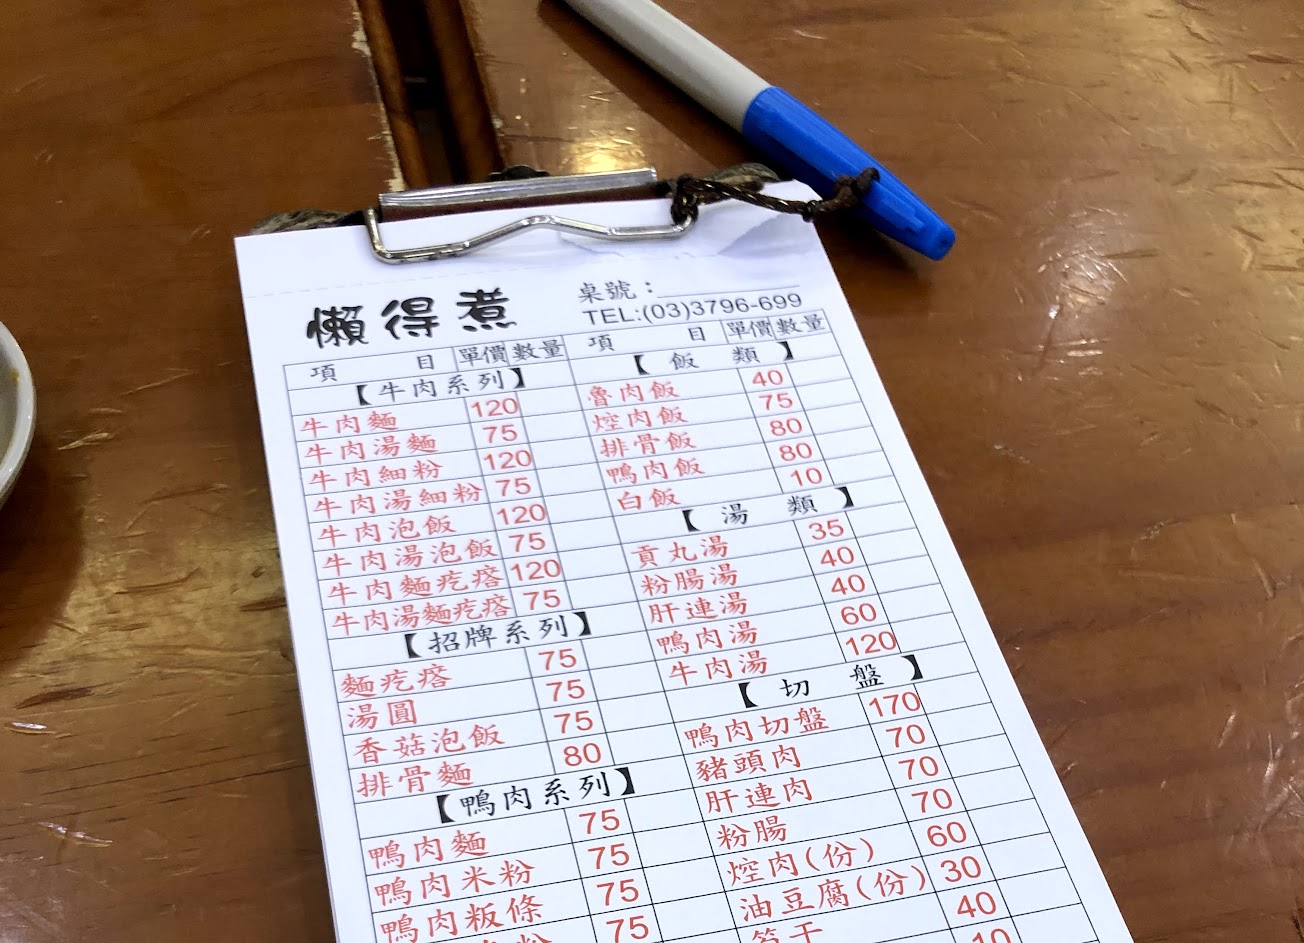 懶得煮
桌號：
TEL:(03)3796-699
項 目 單價 數量
【牛肉系列】
牛肉麵 120
牛肉湯麵 75
牛肉細粉 120
牛肉湯細粉 75
牛肉泡飯 120
牛肉湯泡飯 75
牛肉麵疙瘩 120
牛肉湯麵疙瘩 75
【招牌系列】
麵疙瘩 75
湯圓 75
香菇泡飯 75
排骨麵 80
【鴨肉系列】
鴨肉麵 75
鴨肉米粉 75
鴨肉粄條 75
粉 75
項 目 單價 數量
【飯 類】
魯肉飯 40
焢肉飯 75
排骨飯 80
鴨肉飯 80
白飯 10
【湯 類】
貢丸湯 35
粉腸湯 40
肝連湯 40
鴨肉湯 60
牛肉湯 120
【切 盤】
鴨肉切盤 170
豬頭肉 70
肝連肉 70
粉腸 70
焢肉(份) 60
油豆腐(份) 30
筍干 40
10